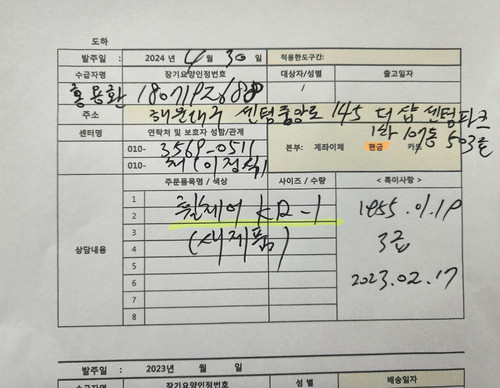 도하
발주일 : 2024 년 4 월 30 일 적용한도구간:
수급자명 장기요양인정번호 대상자/성별 출고일자
홍용환 /
주소 해운대구 센텀중앙로 145 더샵센텀파크
1차 107동 503호
센터명 연락처 및 보호자 성함/관계 본부: 계좌이체 현금 카드
010- 3569-0511
010- 처(이정식)
상담내용 주문품목명 / 색상 사이즈 / 수량 < 특이사항 >
1
2 휠체어 KD-1 1955.01.19
3
4 (새제품) 3급
5
6 2023.02.17
7
8
발주일 : 2023년 월 일
수급자명 장기요양인정번호 성 별 배송일자